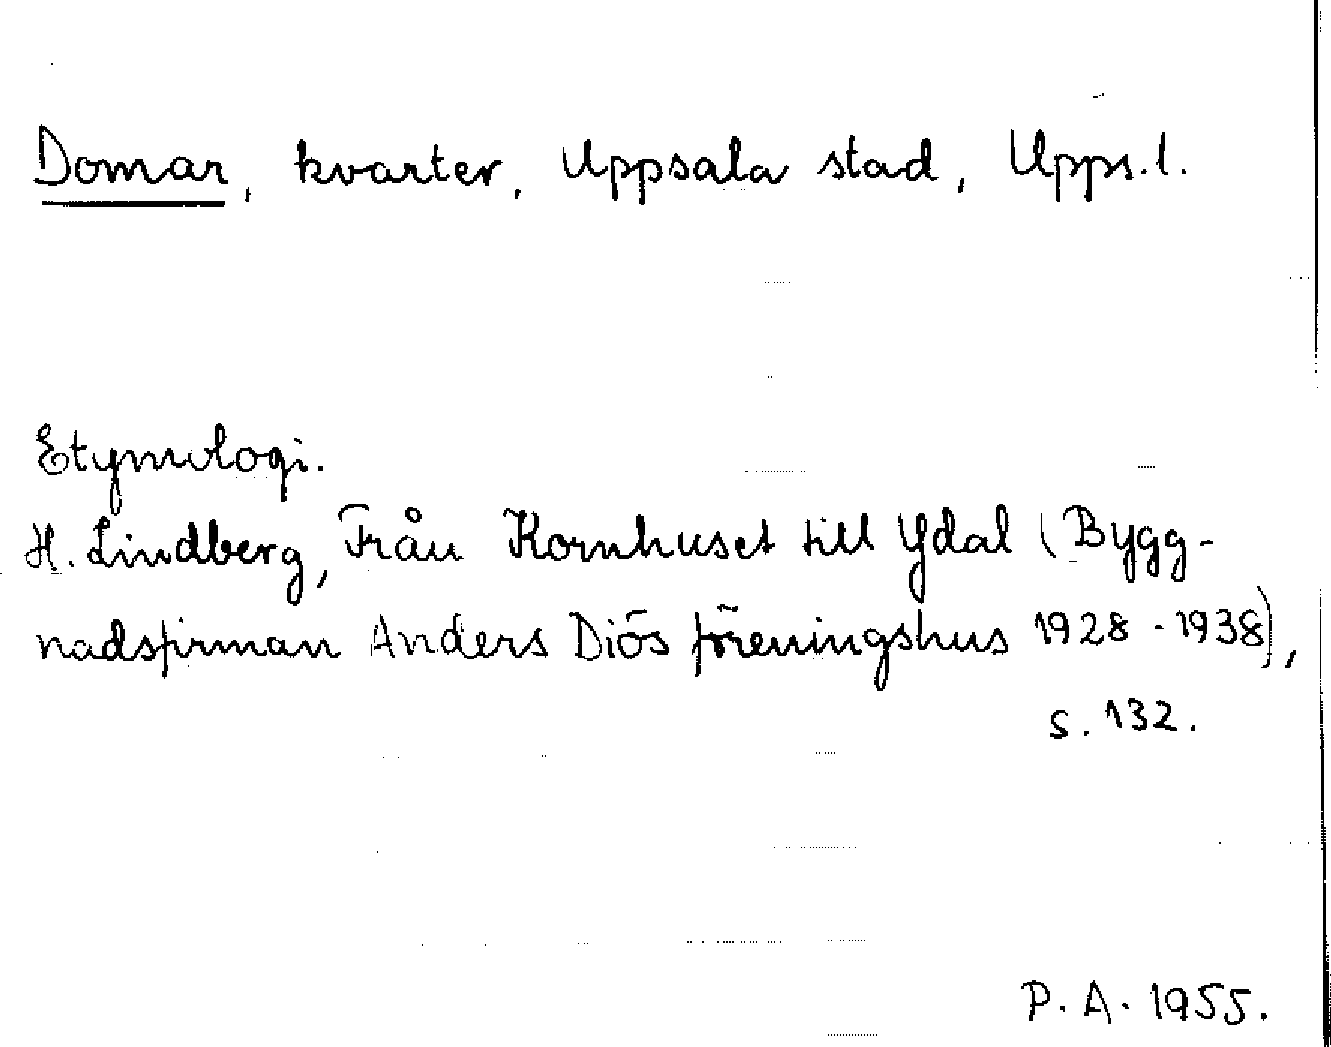 Domar, kvarter, Uppsala stad, Upps. l.
Etymologi.
H. Lindberg, Från Kornhuset till Ydal (Bygg-
nadsfirman Anders Diös föreningshus 1928 - 1938),
s. 132.
P. A. 1955.